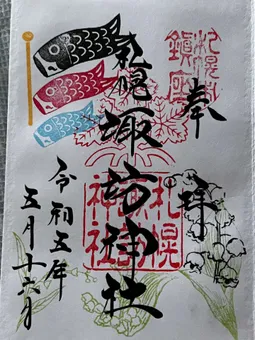 奉拝
札幌諏訪神社
令和五年
五月十六日
札幌
鎮座
札幌諏訪神社